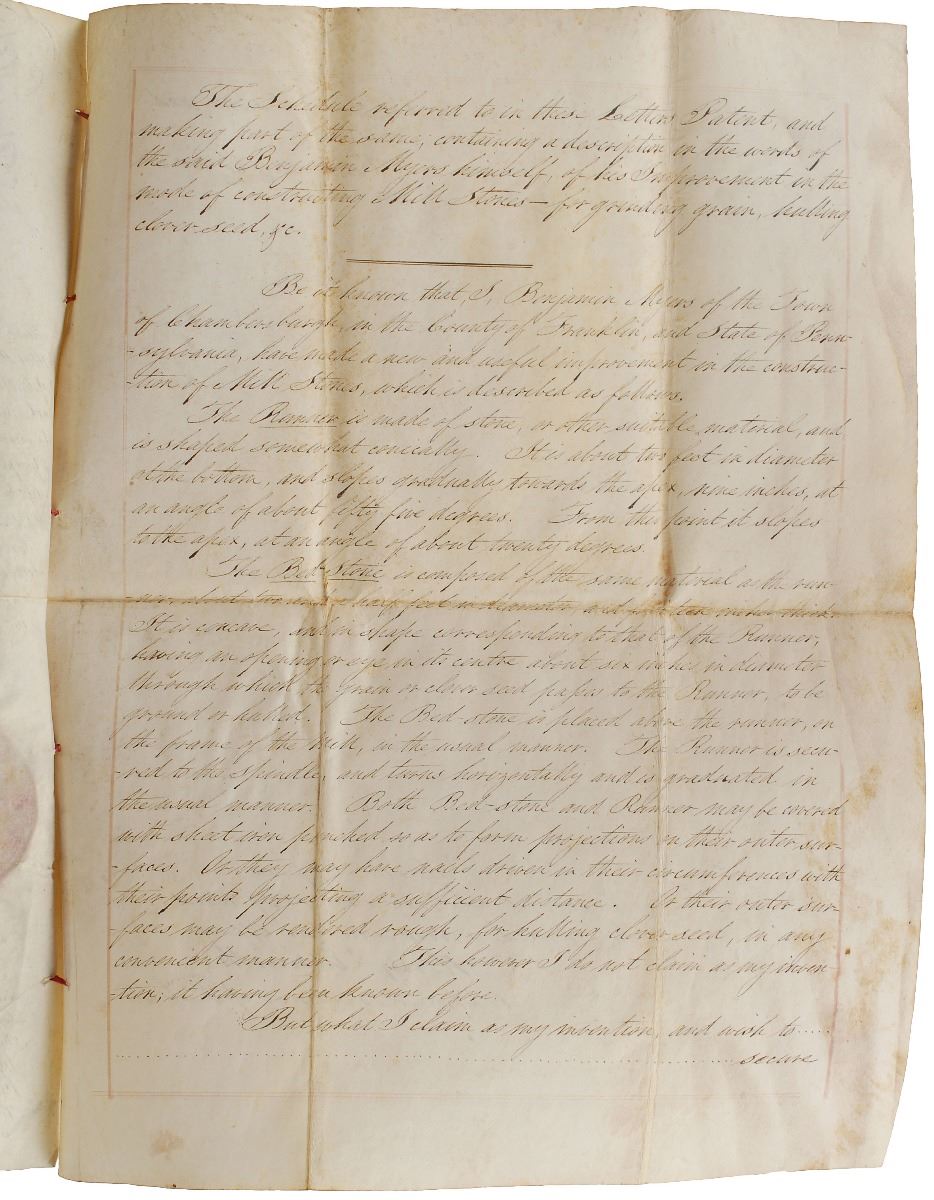 The Schedule referred to in these Letters Patent, and
making part of the same, containing a description in the words of
the said Benjamin Myers himself, of his Improvement in the
mode of constructing Mill Stones — for grinding grain, hulling
clover-seed, &c.
Be it known that I, Benjamin Myers of the Town
of Chambersburgh, in the County of Franklin, and State of Penn-
-sylvania, have made a new and useful improvement in the construc-
-tion of Mill Stones, which is described as follows.
The Runner is made of stone, or other suitable material, and
is shaped somewhat conically. It is about two feet in diameter
at the bottom, and slopes gradually towards the apex, nine inches, at
an angle of about fifty five degrees. From this point it slopes
to the apex, at an angle of about twenty degrees.
The Bed-Stone is composed of the same material as the run-
-ner, about two and a half feet in diameter, and inches thick.
It is concave, and in shape corresponding to that of the Runner,
having an opening or eye in its centre about six inches in diameter
through which the grain or clover seed passes to the Runner, to be
ground or hulled. The Bed-stone is placed above the runner, on
the frame of the Mill, in the usual manner. The Runner is secu-
-red to the spindle, and turns horizontally and is graduated in
the usual manner. Both Bed-stone and Runner may be covered
with sheet iron punched so as to form projections on their outer sur-
-faces. Or they may have nails driven in their circumferences with
their points projecting a sufficient distance. Or their outer sur-
-faces may be rendered rough, for hulling clover seed, in any
convenient manner. This however I do not claim as my inven-
-tion; it having been known before.
But what I claim as my invention, and wish to .....
secure